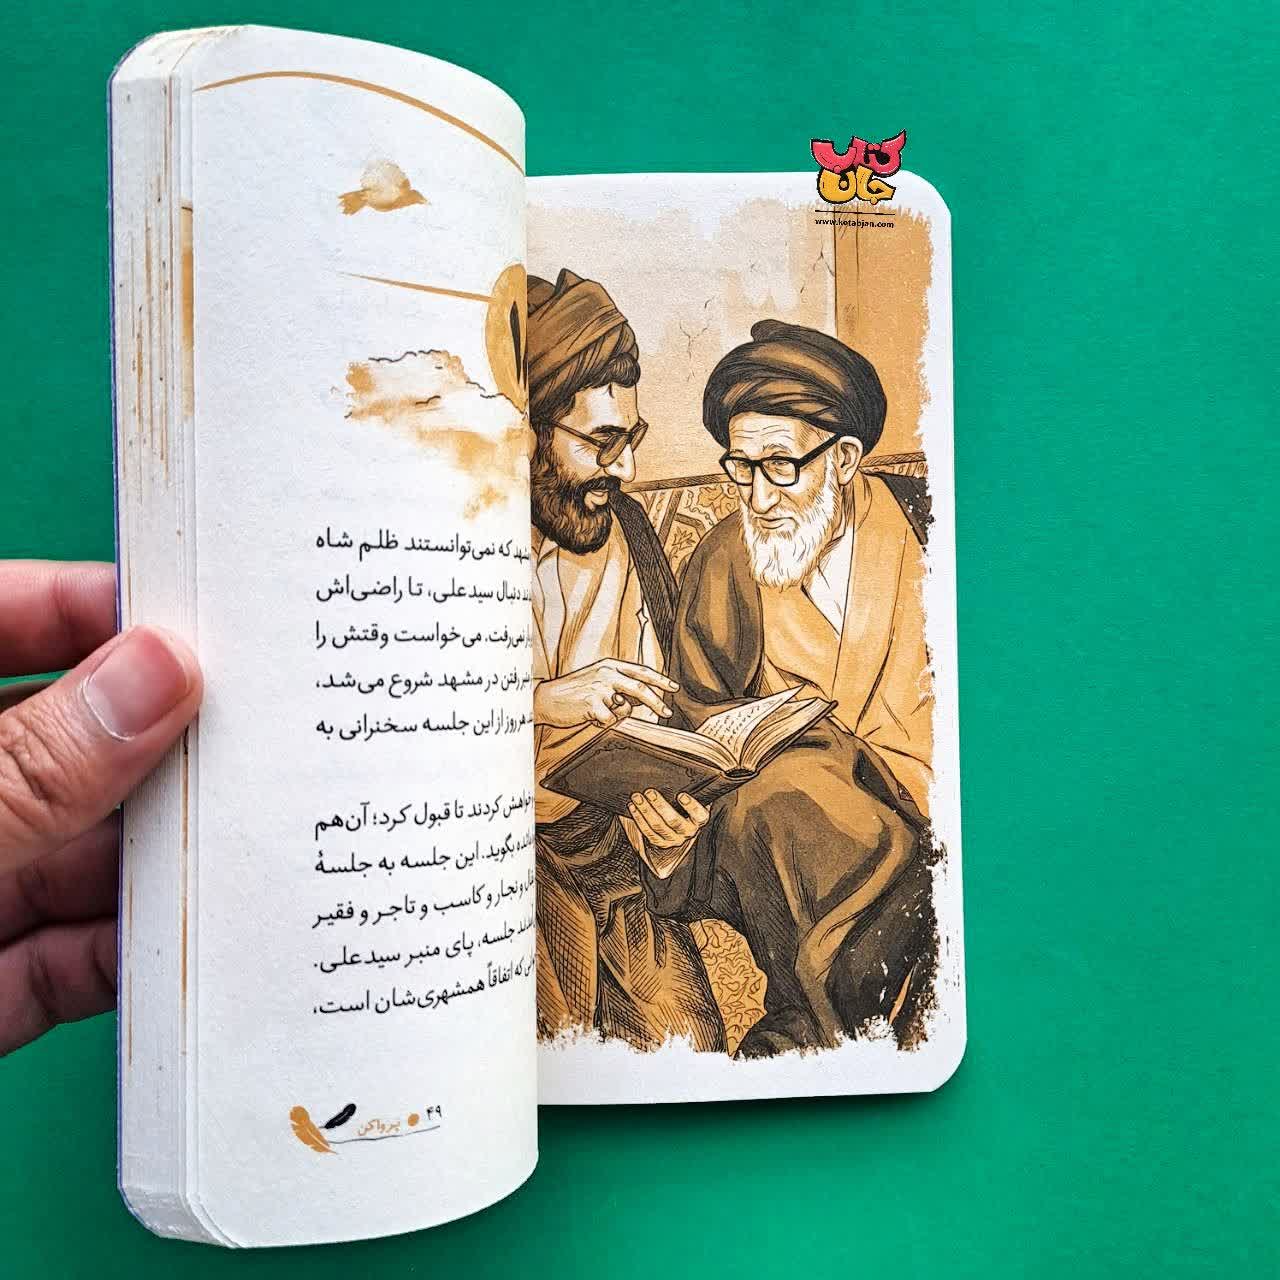 کتاب
جان
www.ketabjan.com
مشهد که نمی‌توانستند ظلم شاه
دنبال سیدعلی، تا راضی‌اش
نمی‌رفت. می‌خواست وقتش را
رفتن در مشهد شروع می‌شد،
هر روز از این جلسه سخنرانی به
خواهش کردند تا قبول کرد؛ آن‌هم
بگوید. این جلسه به جلسهٔ
و نجار و کاسب و تاجر و فقیر
جلسه، پای منبر سیدعلی.
که اتفاقاً همشهری‌شان است،
۴۹ پر واکن